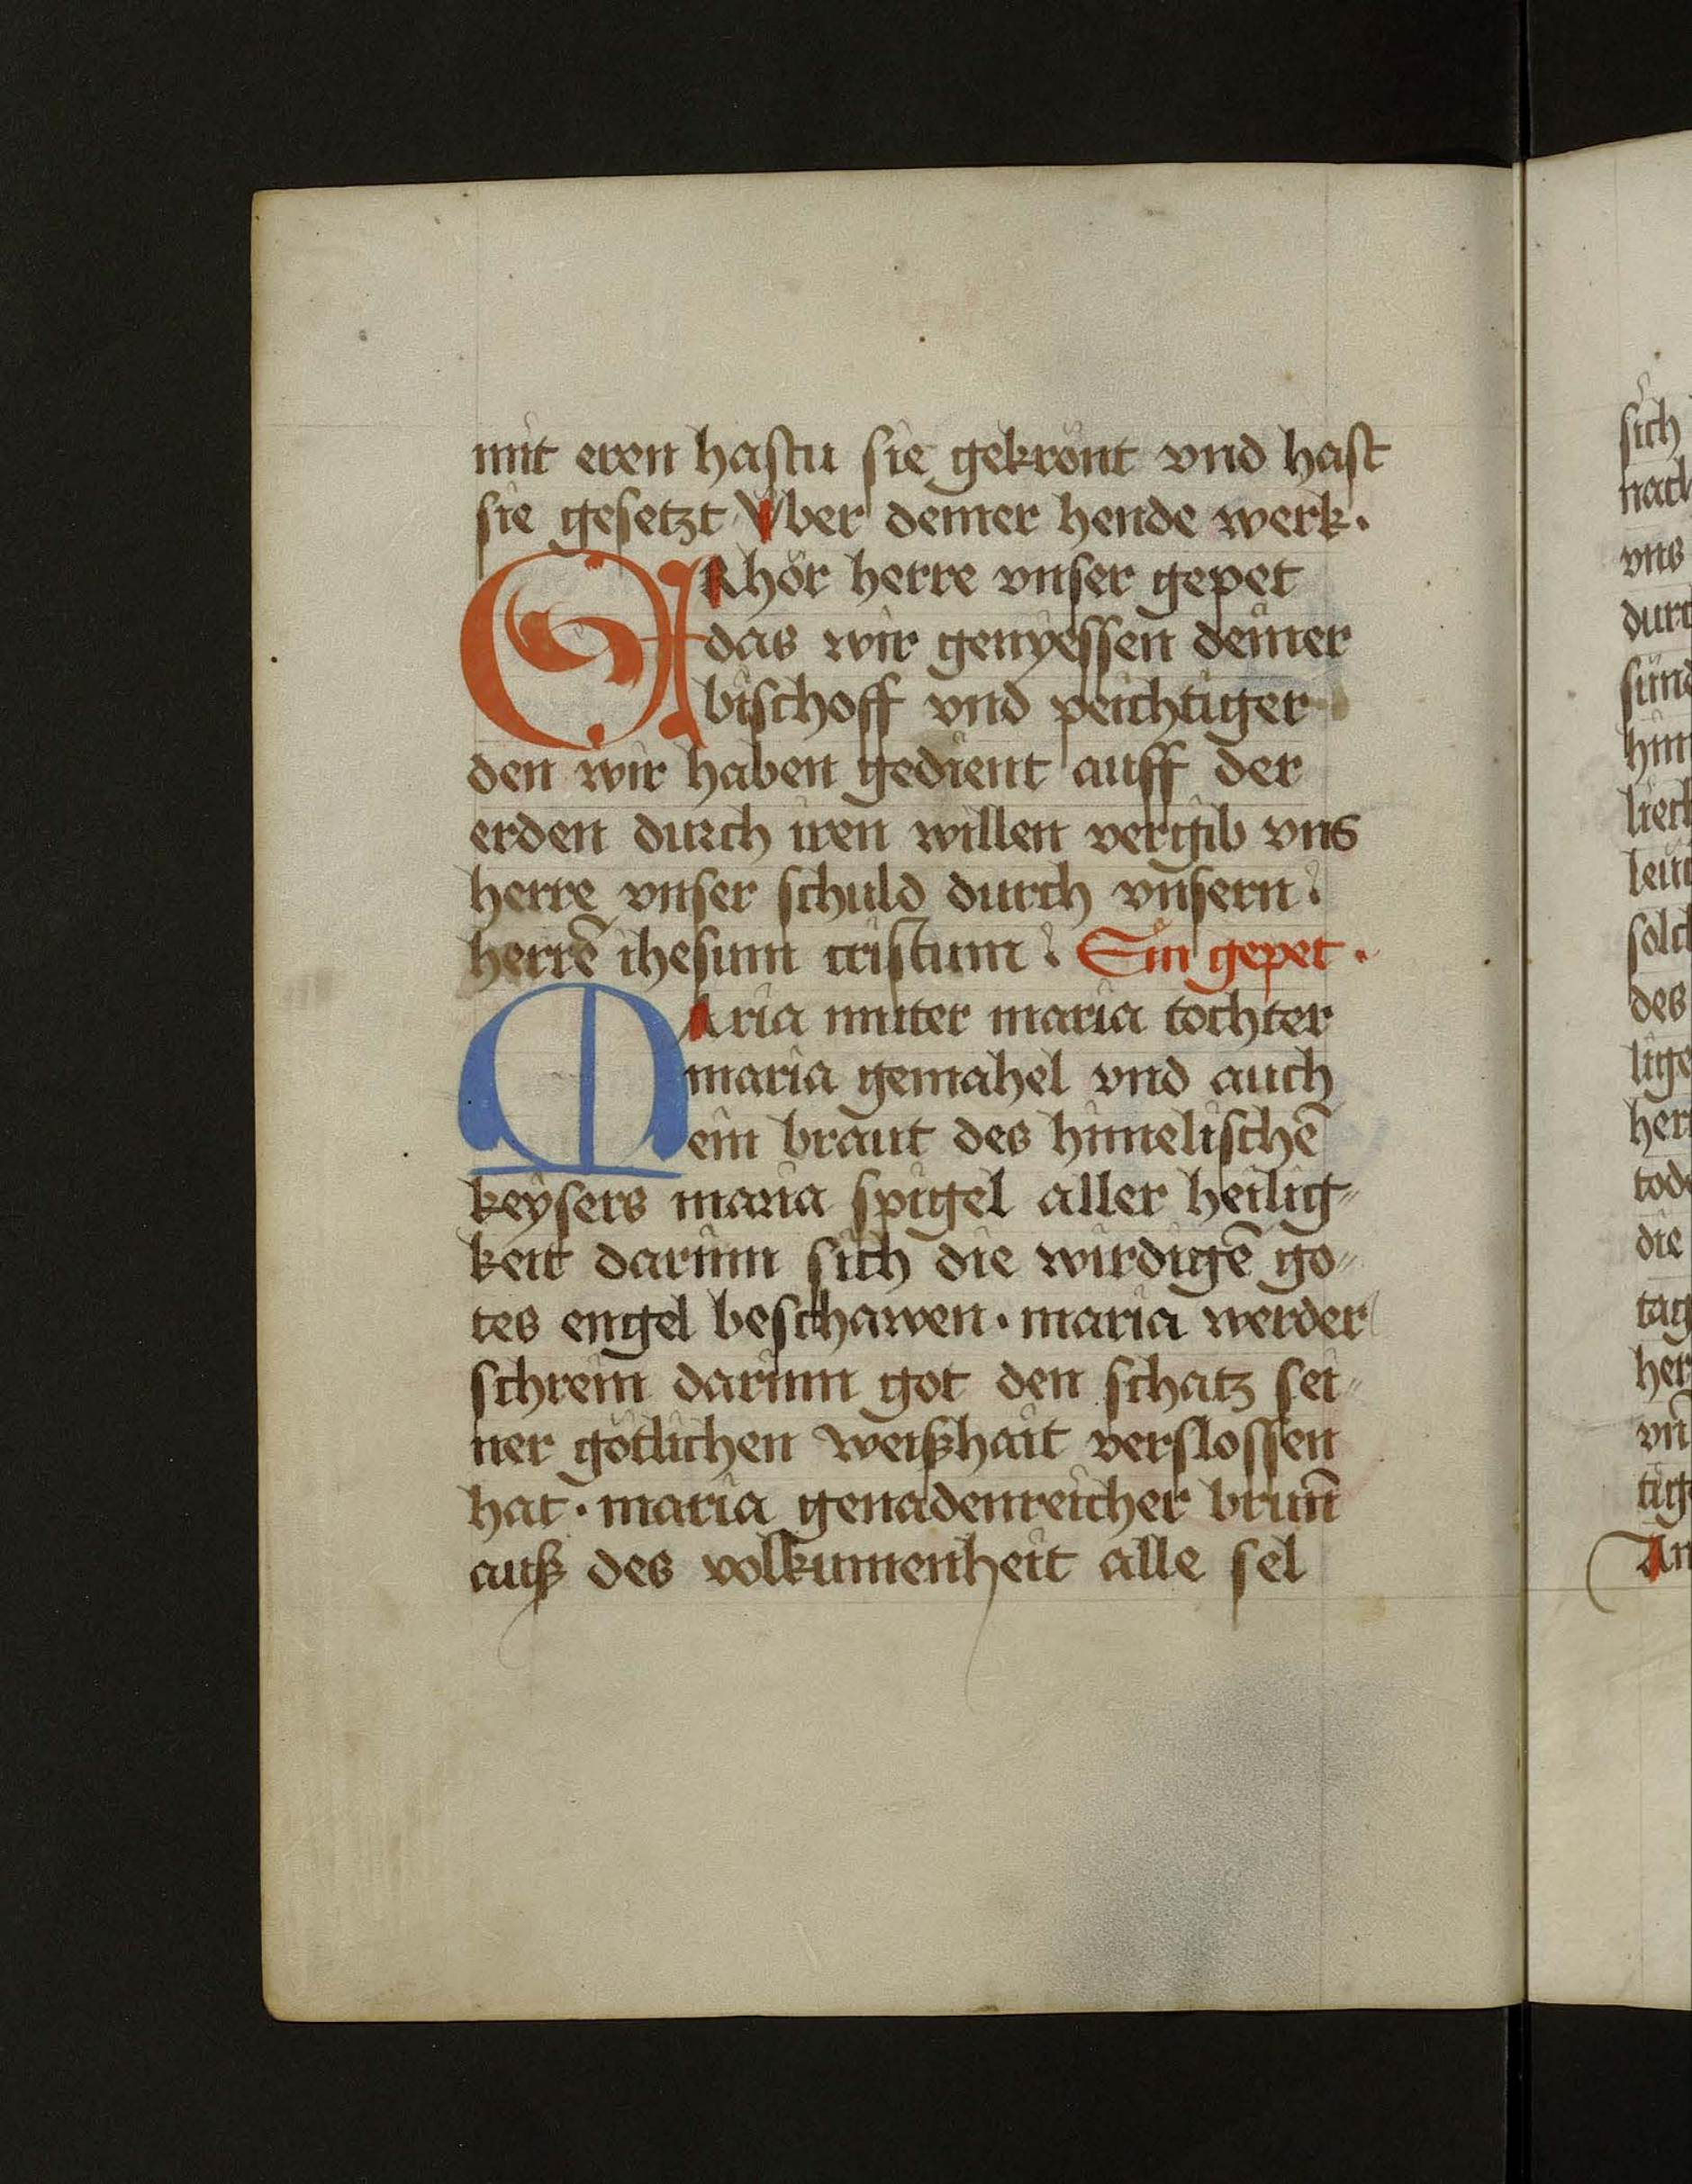 mit eren hastu sie gekrönt vnd hast
sie gesetzt Vber deiner hende werk.
ERhör herre vnser gepet
das wir genyessen deiner
bischoff vnd peichtiger
den wir haben gedient auff der
erden durch iren willen vergib vns
herre vnser schuld durch vnsern
herrē ihesum cristum Ein gepet.
MAria muter maria tochter
maria gemahel vnd auch
ein braut des himelischē
keysers maria spigel aller heilig-
keit darinn sich die wirdigē go-
tes engel beschawen. maria werder
schrein darinn got den schatz sei-
ner götlichen weißhait verslossen
hat. maria genadenreicher brun̄
auß des volkumenheit alle sel
sich
vns
sünd
des
tode
die
tag
vn̄